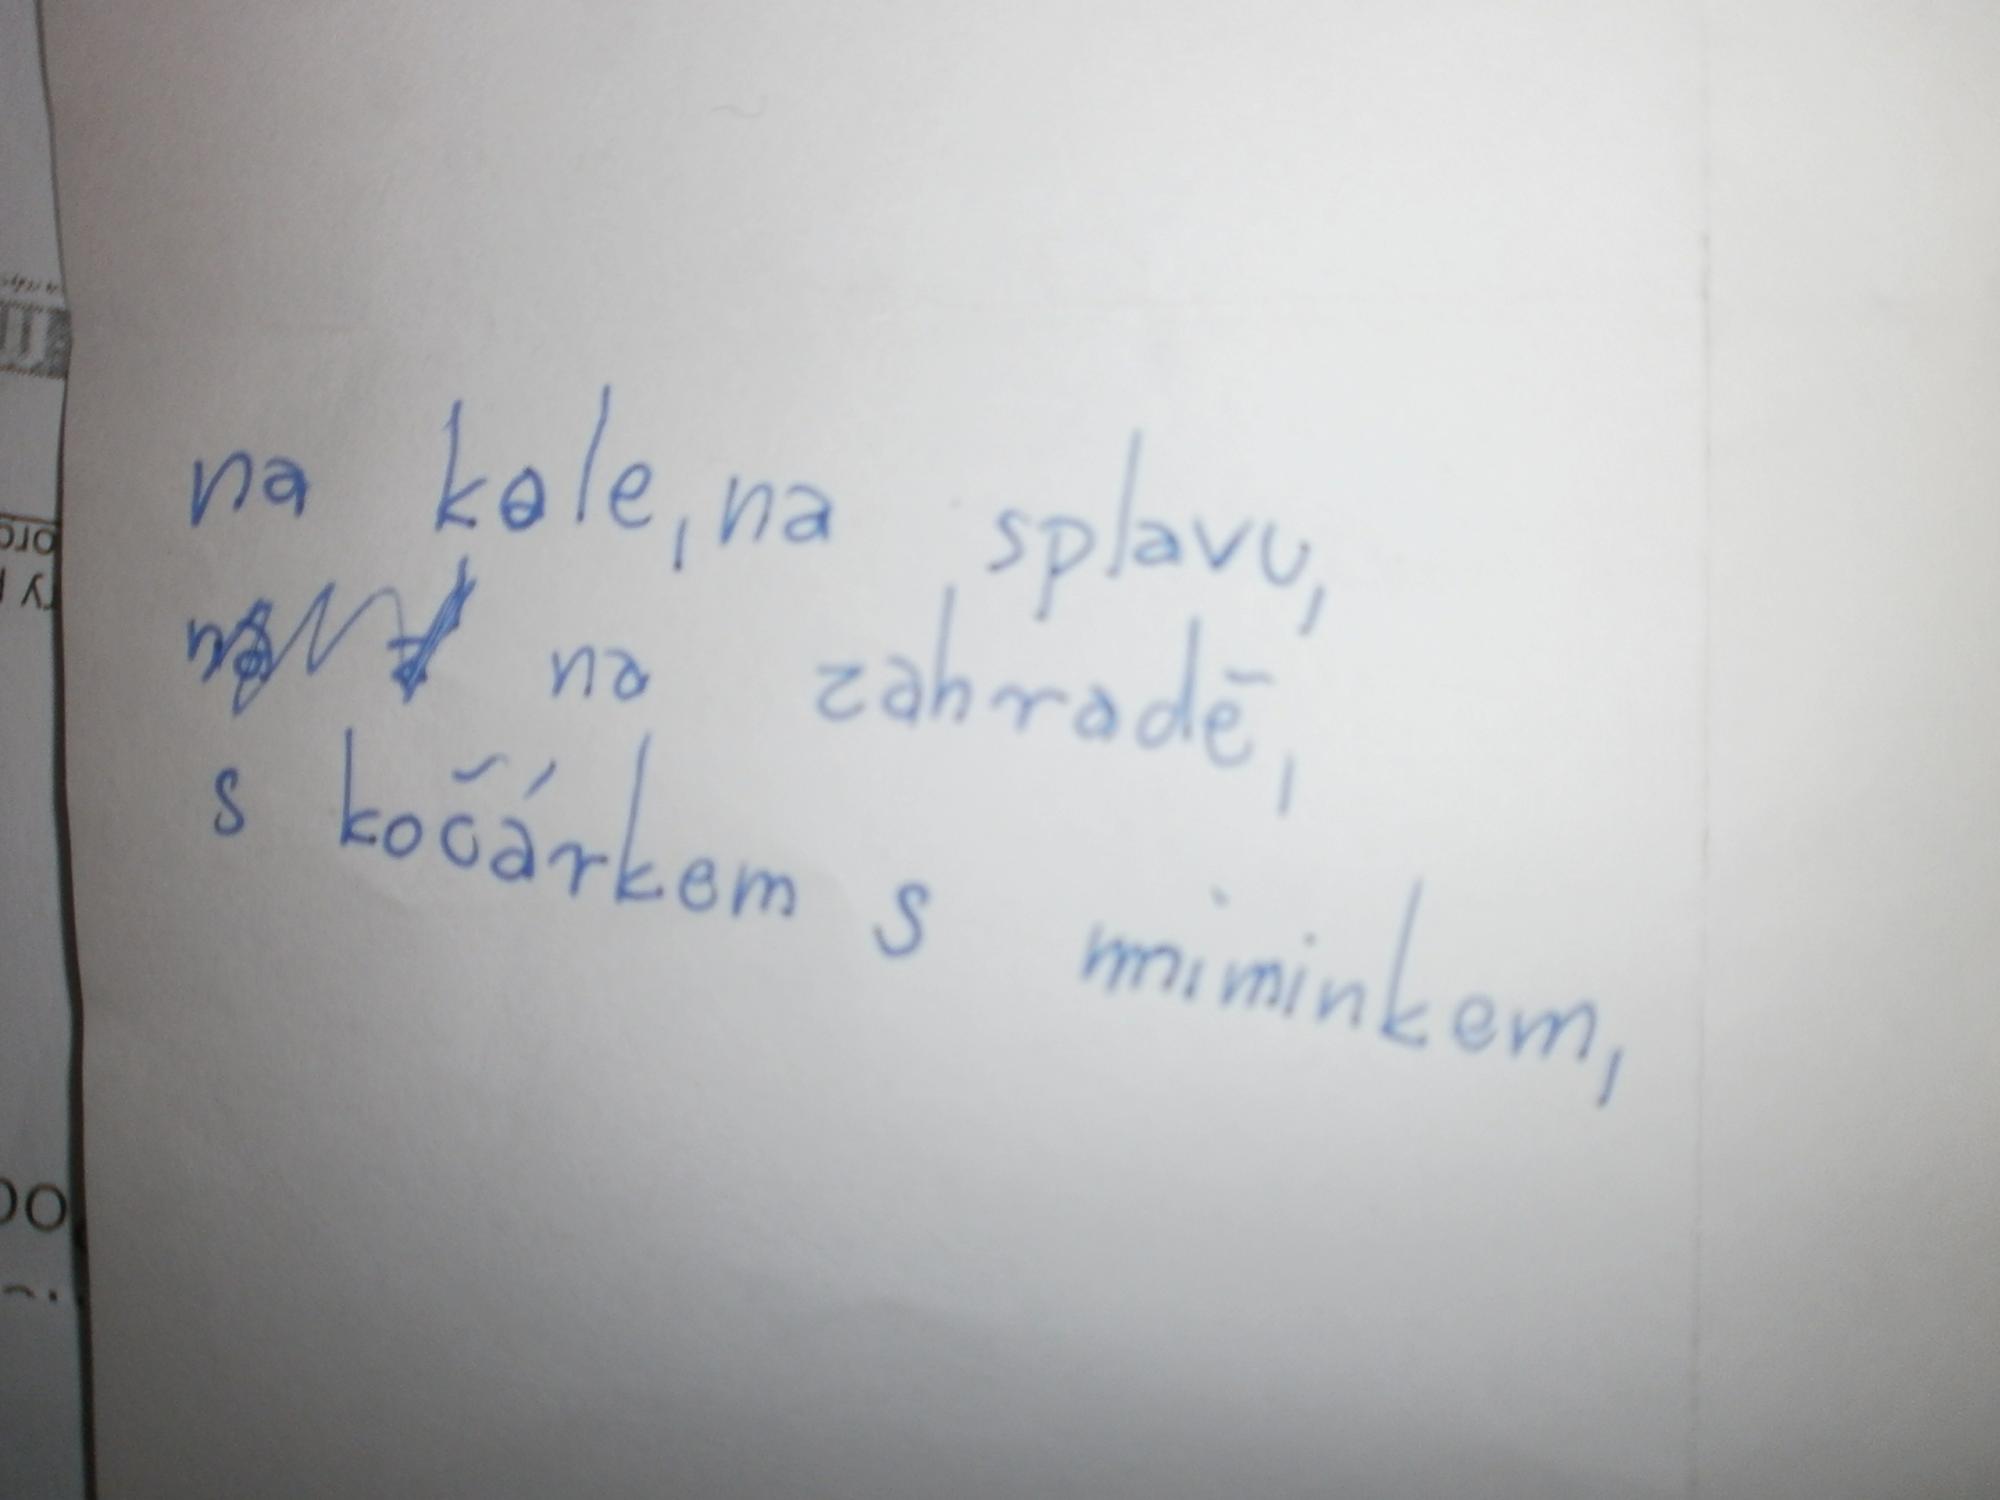 na kole, na splavu,
na zahradě,
s kočárkem s miminkem,